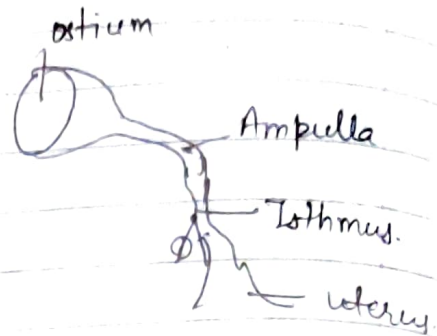 ostium
Ampulla
Isthmus.
uterus